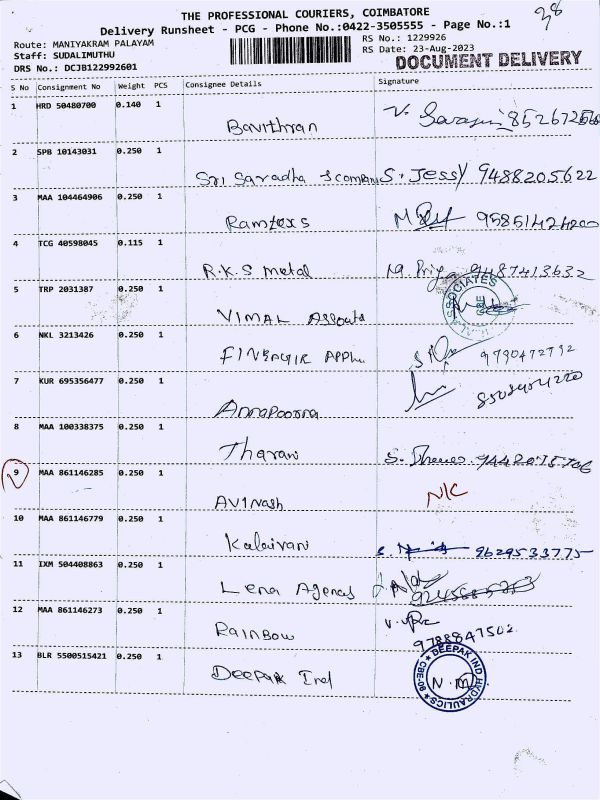 THE PROFESSIONAL COURIERS, COIMBATORE
Delivery Runsheet - PCG - Phone No.:0422-3505555 - Page No.:1
38
Route: MANIYAKRAM PALAYAM
Staff: SUDALIMUTHU
DRS No.: DCJB122992601
RS No.: 1229926
RS Date: 23-Aug-2023
DOCUMENT DELIVERY
S No Consignment No Weight PCS Consignee Details Signature
1 HRD 50480700 0.140 1
Bavithran V.
2 SPB 10143031 0.250 1
Sri Saradha S. Jessy 9488205622
3 MAA 104464906 0.250 1
Ramtexs
4 TCG 40598045 0.115 1
R.K.S Metal Priya 9487413632
5 TRP 2031387 0.250 1
VIMAL
ASSOCIATES
6 NKL 3213426 0.250 1
9790472792
7 KUR 695356477 0.250 1
Annapoorna
8 MAA 100338375 1
Tharani S.
9 MAA 861146285 0.250 1
Avinash N/C
10 MAA 861146779 0.250 1
Kalaivani 9629533775
11 IXM 504408863 0.250 1
Lena Agences
12 MAA 861146273 0.250 1
Rainbow
9788847502
13 BLR 5500515421 0.250 1
Deepak Ind
DEEPAK IND HYDRAULICS
N.M